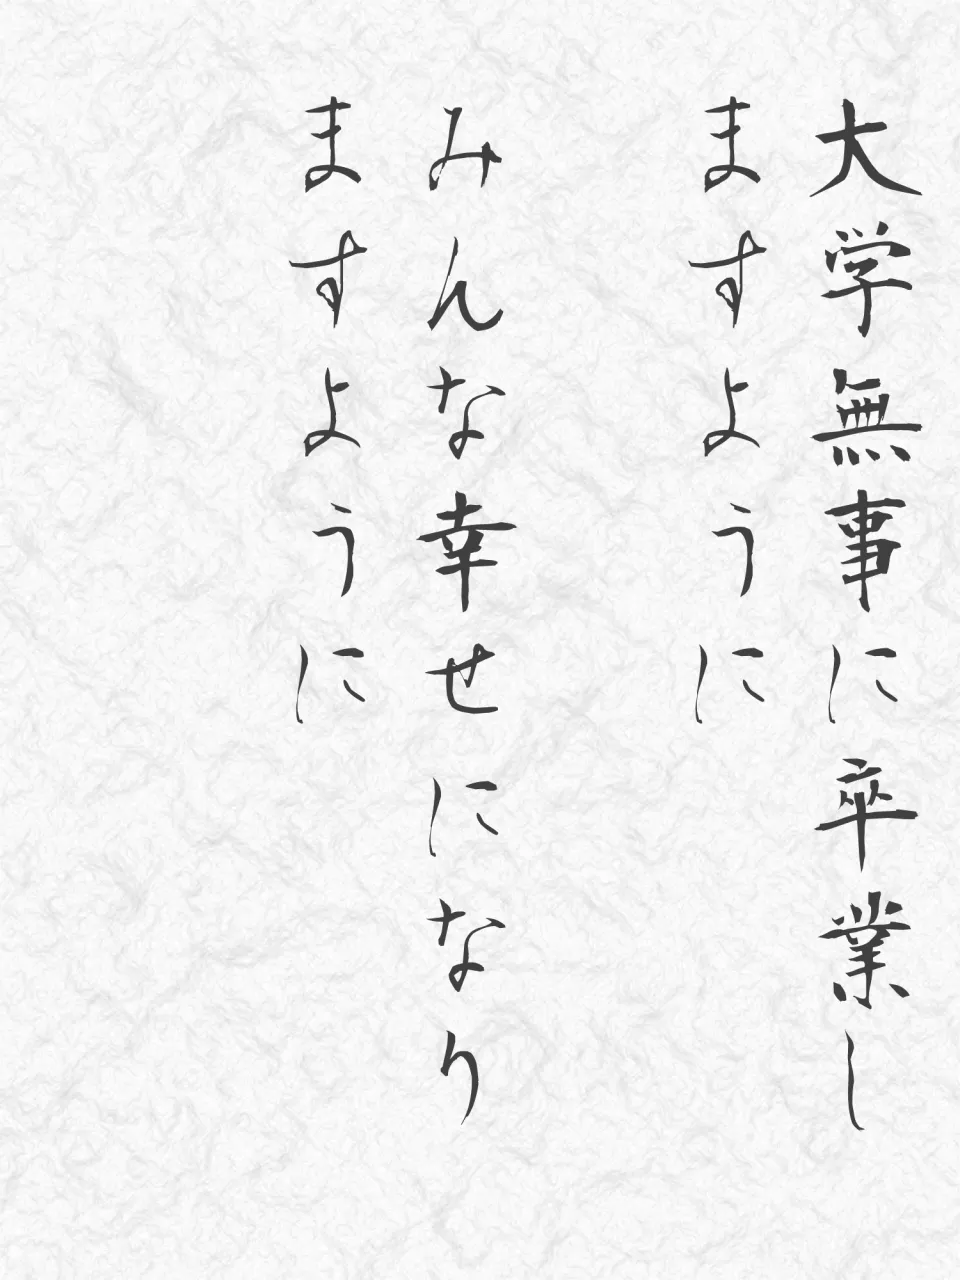 大学無事に卒業し
ますように
みんな幸せになり
ますように